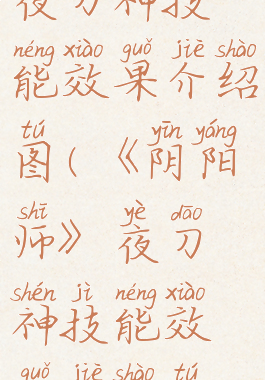 夜刀神技
néng xiào guǒ jiè shào
能效果介绍
tú yīn yáng
图(《阴阳
shī yè dāo
师》夜刀
shén jì néng xiào
神技能效
guǒ jiè shào tú